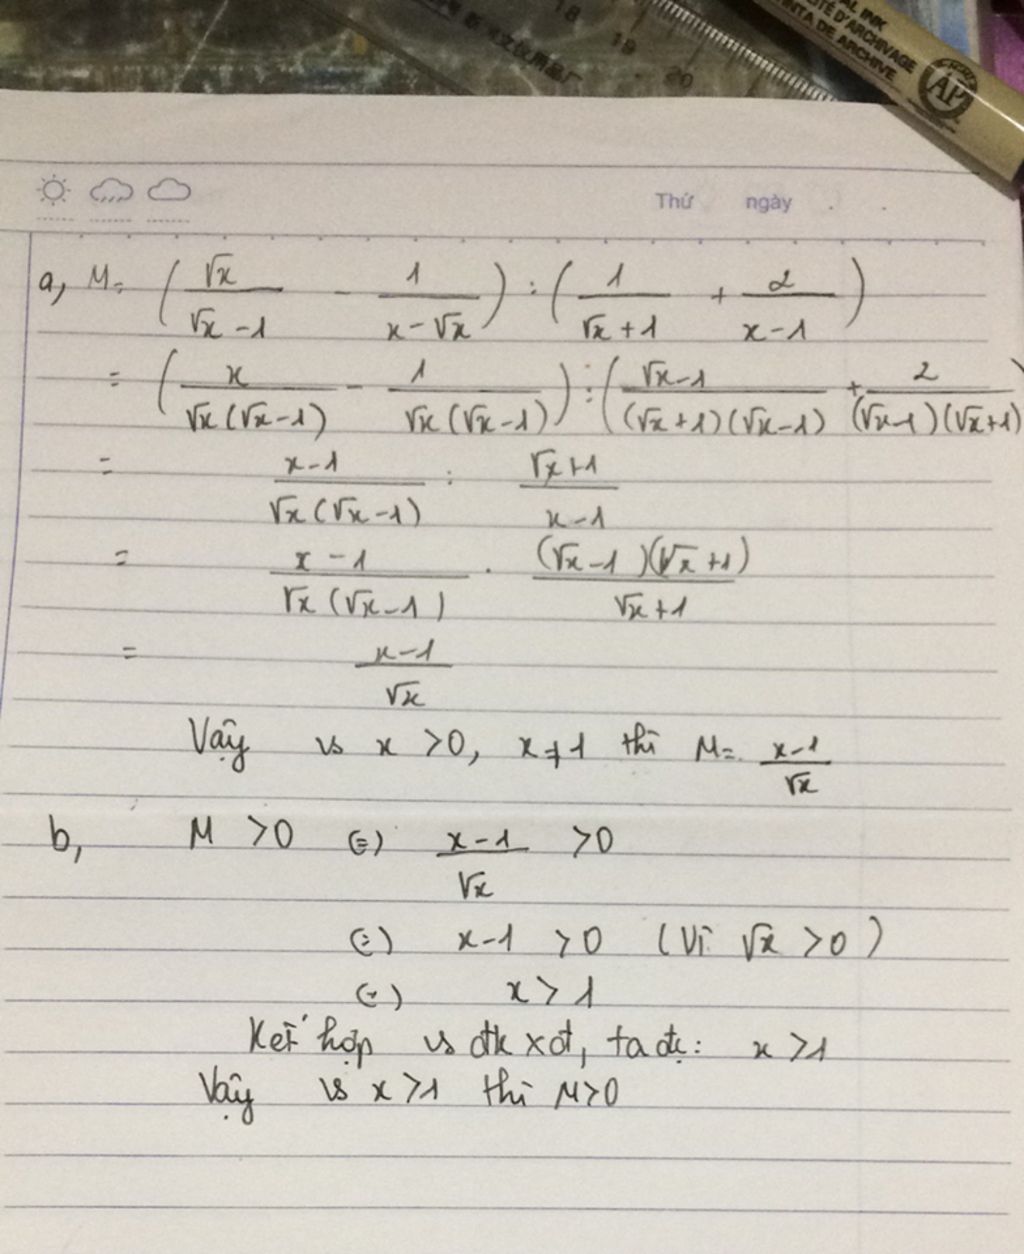 AL INK
ITÉ D'ARCHIVAGE
TINTA DE ARCHIVE
AP
18
19
20
Thứ ngày
a, M = (√x / (√x - 1) - 1 / (x - √x)) : (1 / (√x + 1) + 2 / (x - 1))
= (x / (√x(√x - 1)) - 1 / (√x(√x - 1))) : ((√x - 1) / ((√x + 1)(√x - 1)) + 2 / ((√x - 1)(√x + 1)))
= (x - 1) / (√x(√x - 1)) : (√x + 1) / (x - 1)
= (x - 1) / (√x(√x - 1)) . ((√x - 1)(√x + 1)) / (√x + 1)
= (x - 1) / √x
Vậy vs x > 0, x ≠ 1 thì M = (x - 1) / √x
b, M > 0 (=) (x - 1) / √x > 0
(=) x - 1 > 0 (Vì √x > 0)
(=) x > 1
Kết hợp vs đk xđ, ta đc: x > 1
Vậy vs x > 1 thì M > 0